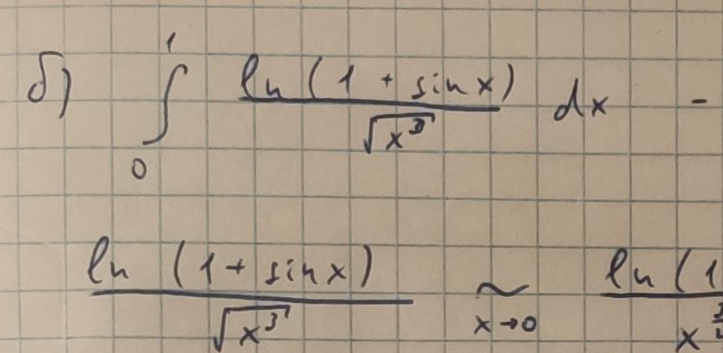 б) ∫₀¹ ln(1 + sin x) / √x³ dx -
ln(1 + sin x) / √x³ ~ x→0 ln(1